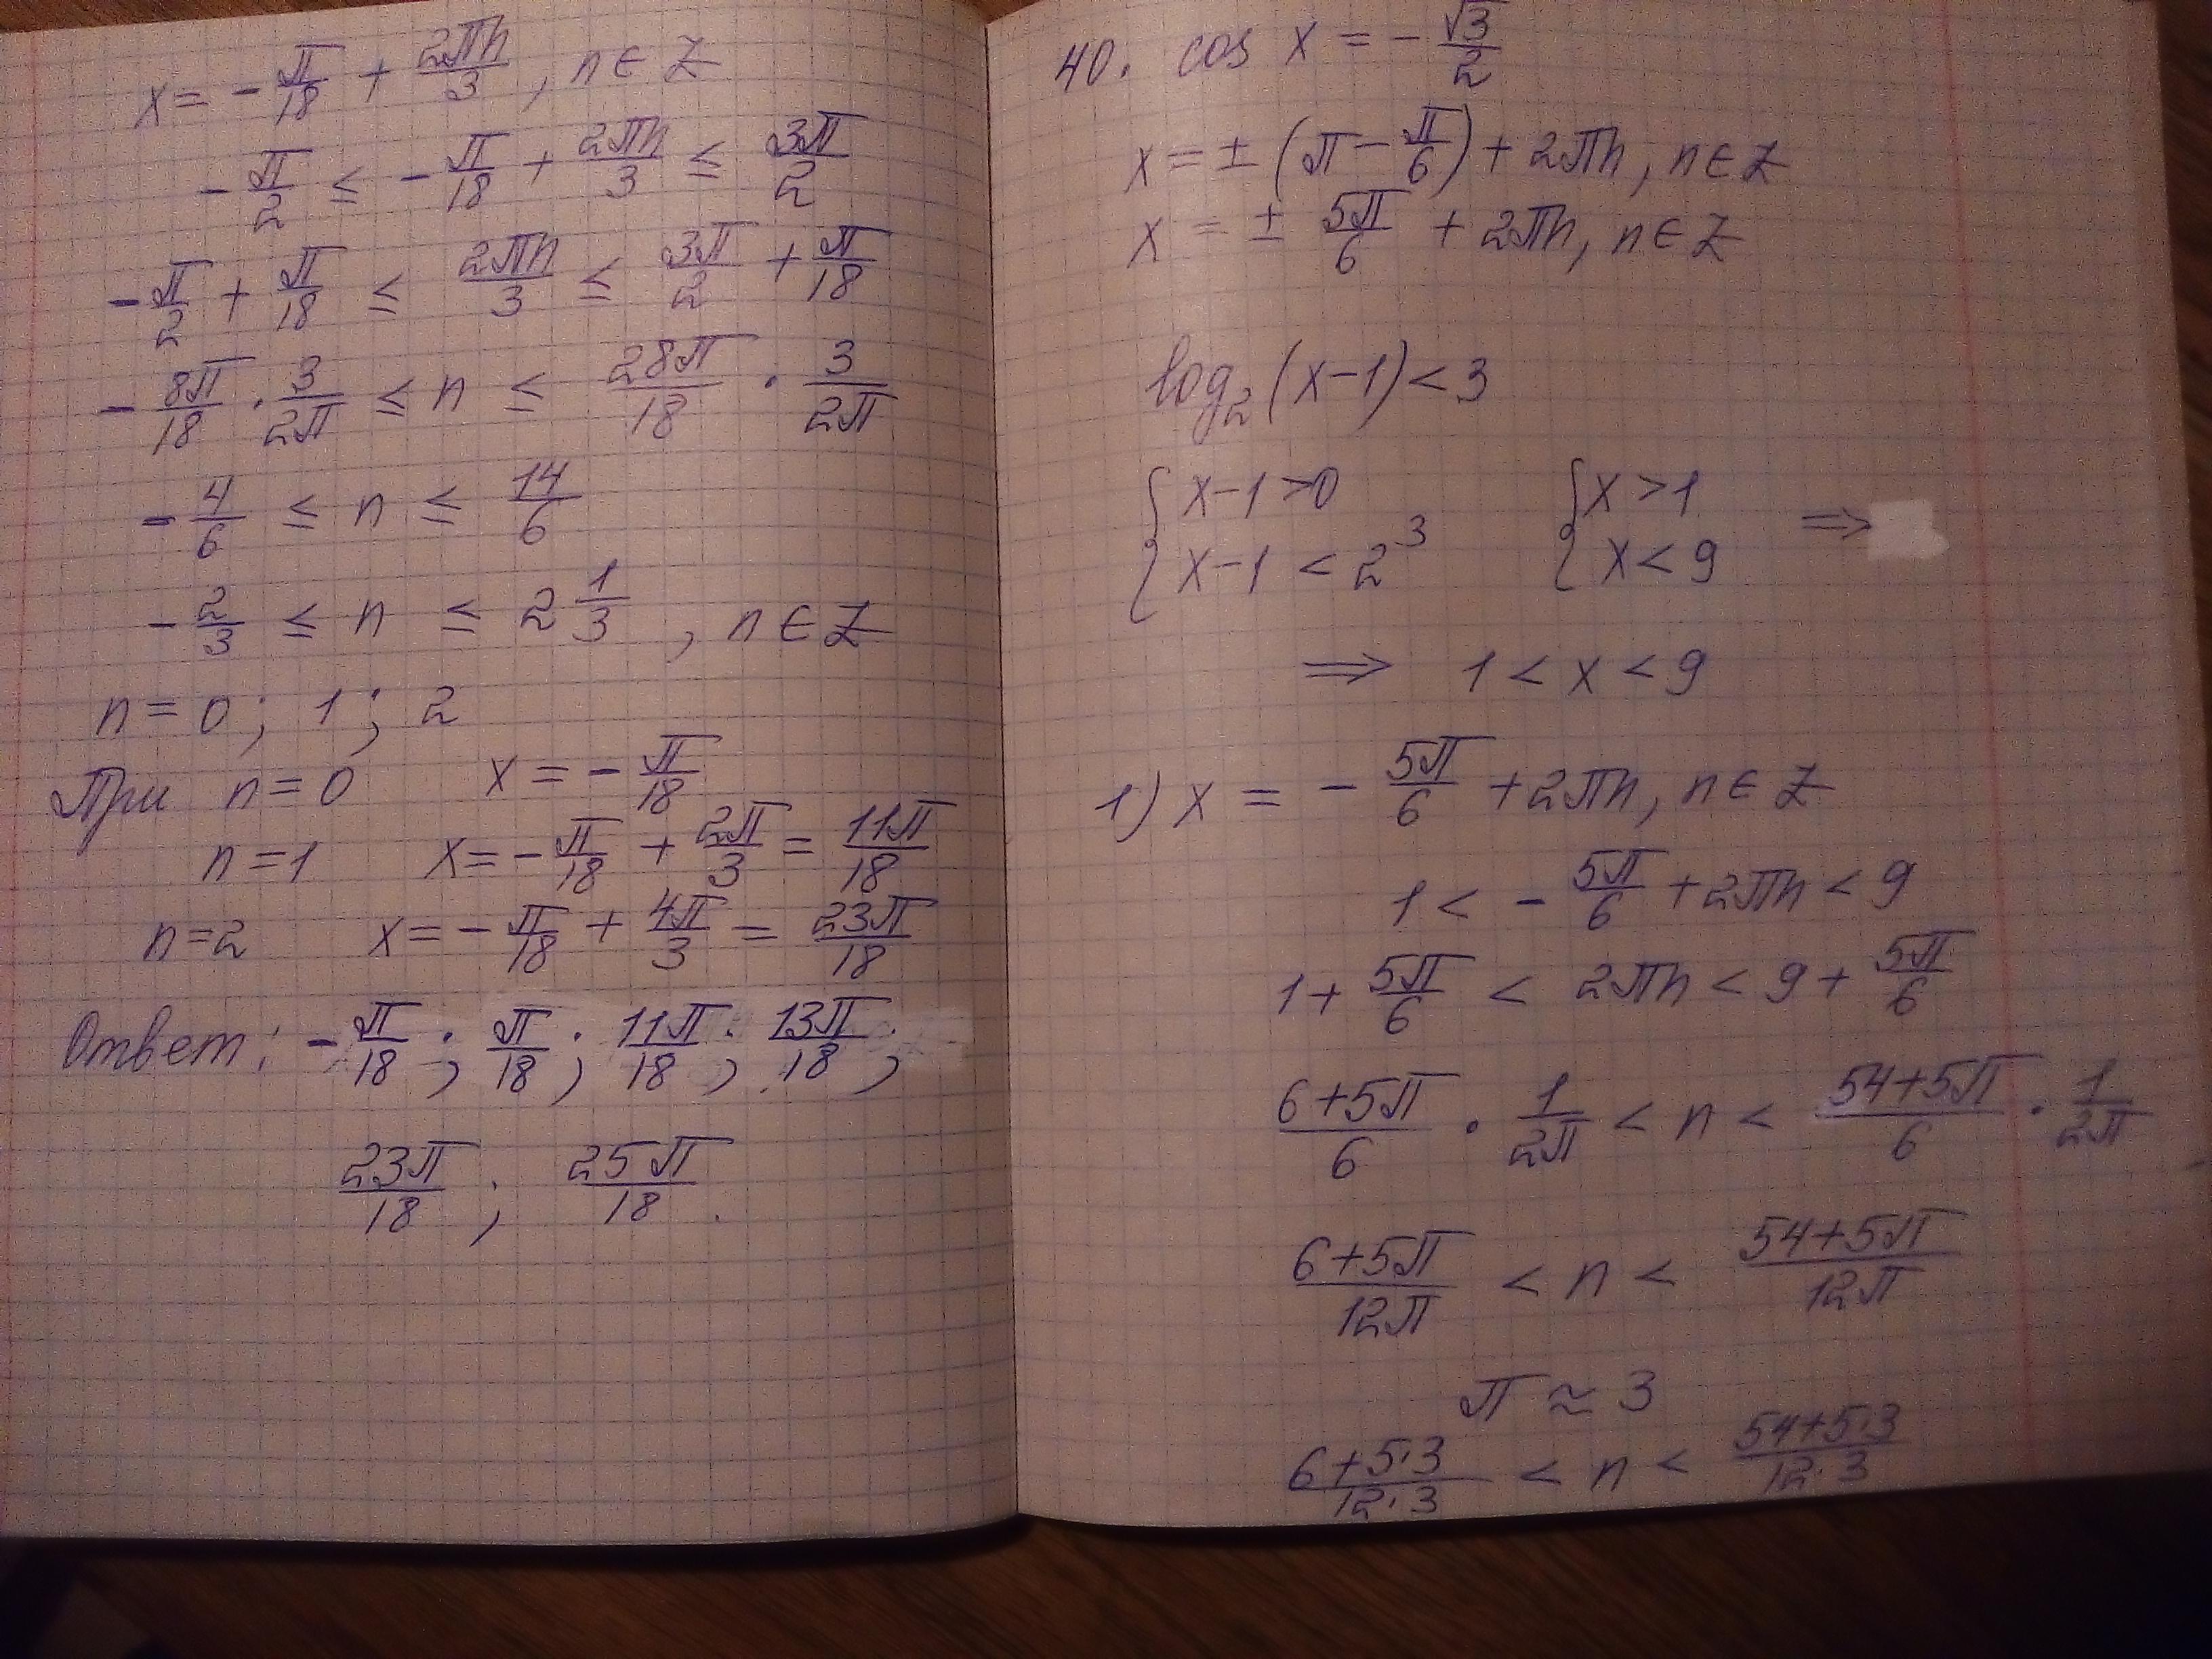 x = -π/18 + 2πn/3, n ∈ Z
-π/2 ≤ -π/18 + 2πn/3 ≤ 3π/2
-π/2 + π/18 ≤ 2πn/3 ≤ 3π/2 + π/18
-8π/18 · 3/2π ≤ n ≤ 28π/18 · 3/2π
-4/6 ≤ n ≤ 14/6
-2/3 ≤ n ≤ 2 1/3, n ∈ Z
n = 0; 1; 2
При n = 0 x = -π/18
n = 1 x = -π/18 + 2π/3 = 11π/18
n = 2 x = -π/18 + 4π/3 = 23π/18
Ответ: -π/18; π/18; 11π/18; 13π/18;
23π/18; 25π/18.
40. cos x = -√3/2
x = ± (π - π/6) + 2πn, n ∈ Z
x = ± 5π/6 + 2πn, n ∈ Z
log₂(x-1) < 3
{ x-1 > 0 { x > 1 ⇒
{ x-1 < 2³ { x < 9
⇒ 1 < x < 9
1) x = -5π/6 + 2πn, n ∈ Z
1 < -5π/6 + 2πn < 9
1 + 5π/6 < 2πn < 9 + 5π/6
6+5π/6 · 1/2π < n < 54+5π/6 · 1/2π
6+5π/12π < n < 54+5π/12π
π ≈ 3
6+5·3/12·3 < n < 54+5·3/12·3